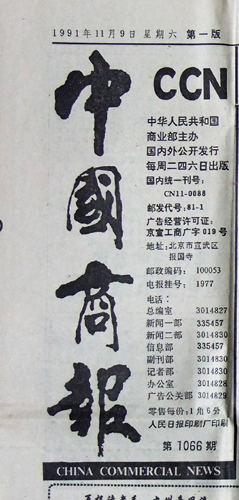 1991年11月9日 星期六 第一版
中國商報
CCN
中华人民共和国
商业部主办
国内外公开发行
每周二四六日出版
国内统一刊号:
CN11-0088
邮发代号: 81-1
广告经营许可证:
京宣工商广字019号
地址: 北京市宣武区
报国寺
邮政编码: 100053
电报挂号: 1977
电话:
总编室 3014827
新闻一部 335457
新闻二部 3014830
信息部 335457
副刊部 3014830
记者部 3014830
办公室 3014828
广告公关部 3014829
零售每份: 1角6分
人民日报印刷厂印刷
第1066期
CHINA COMMERCIAL NEWS